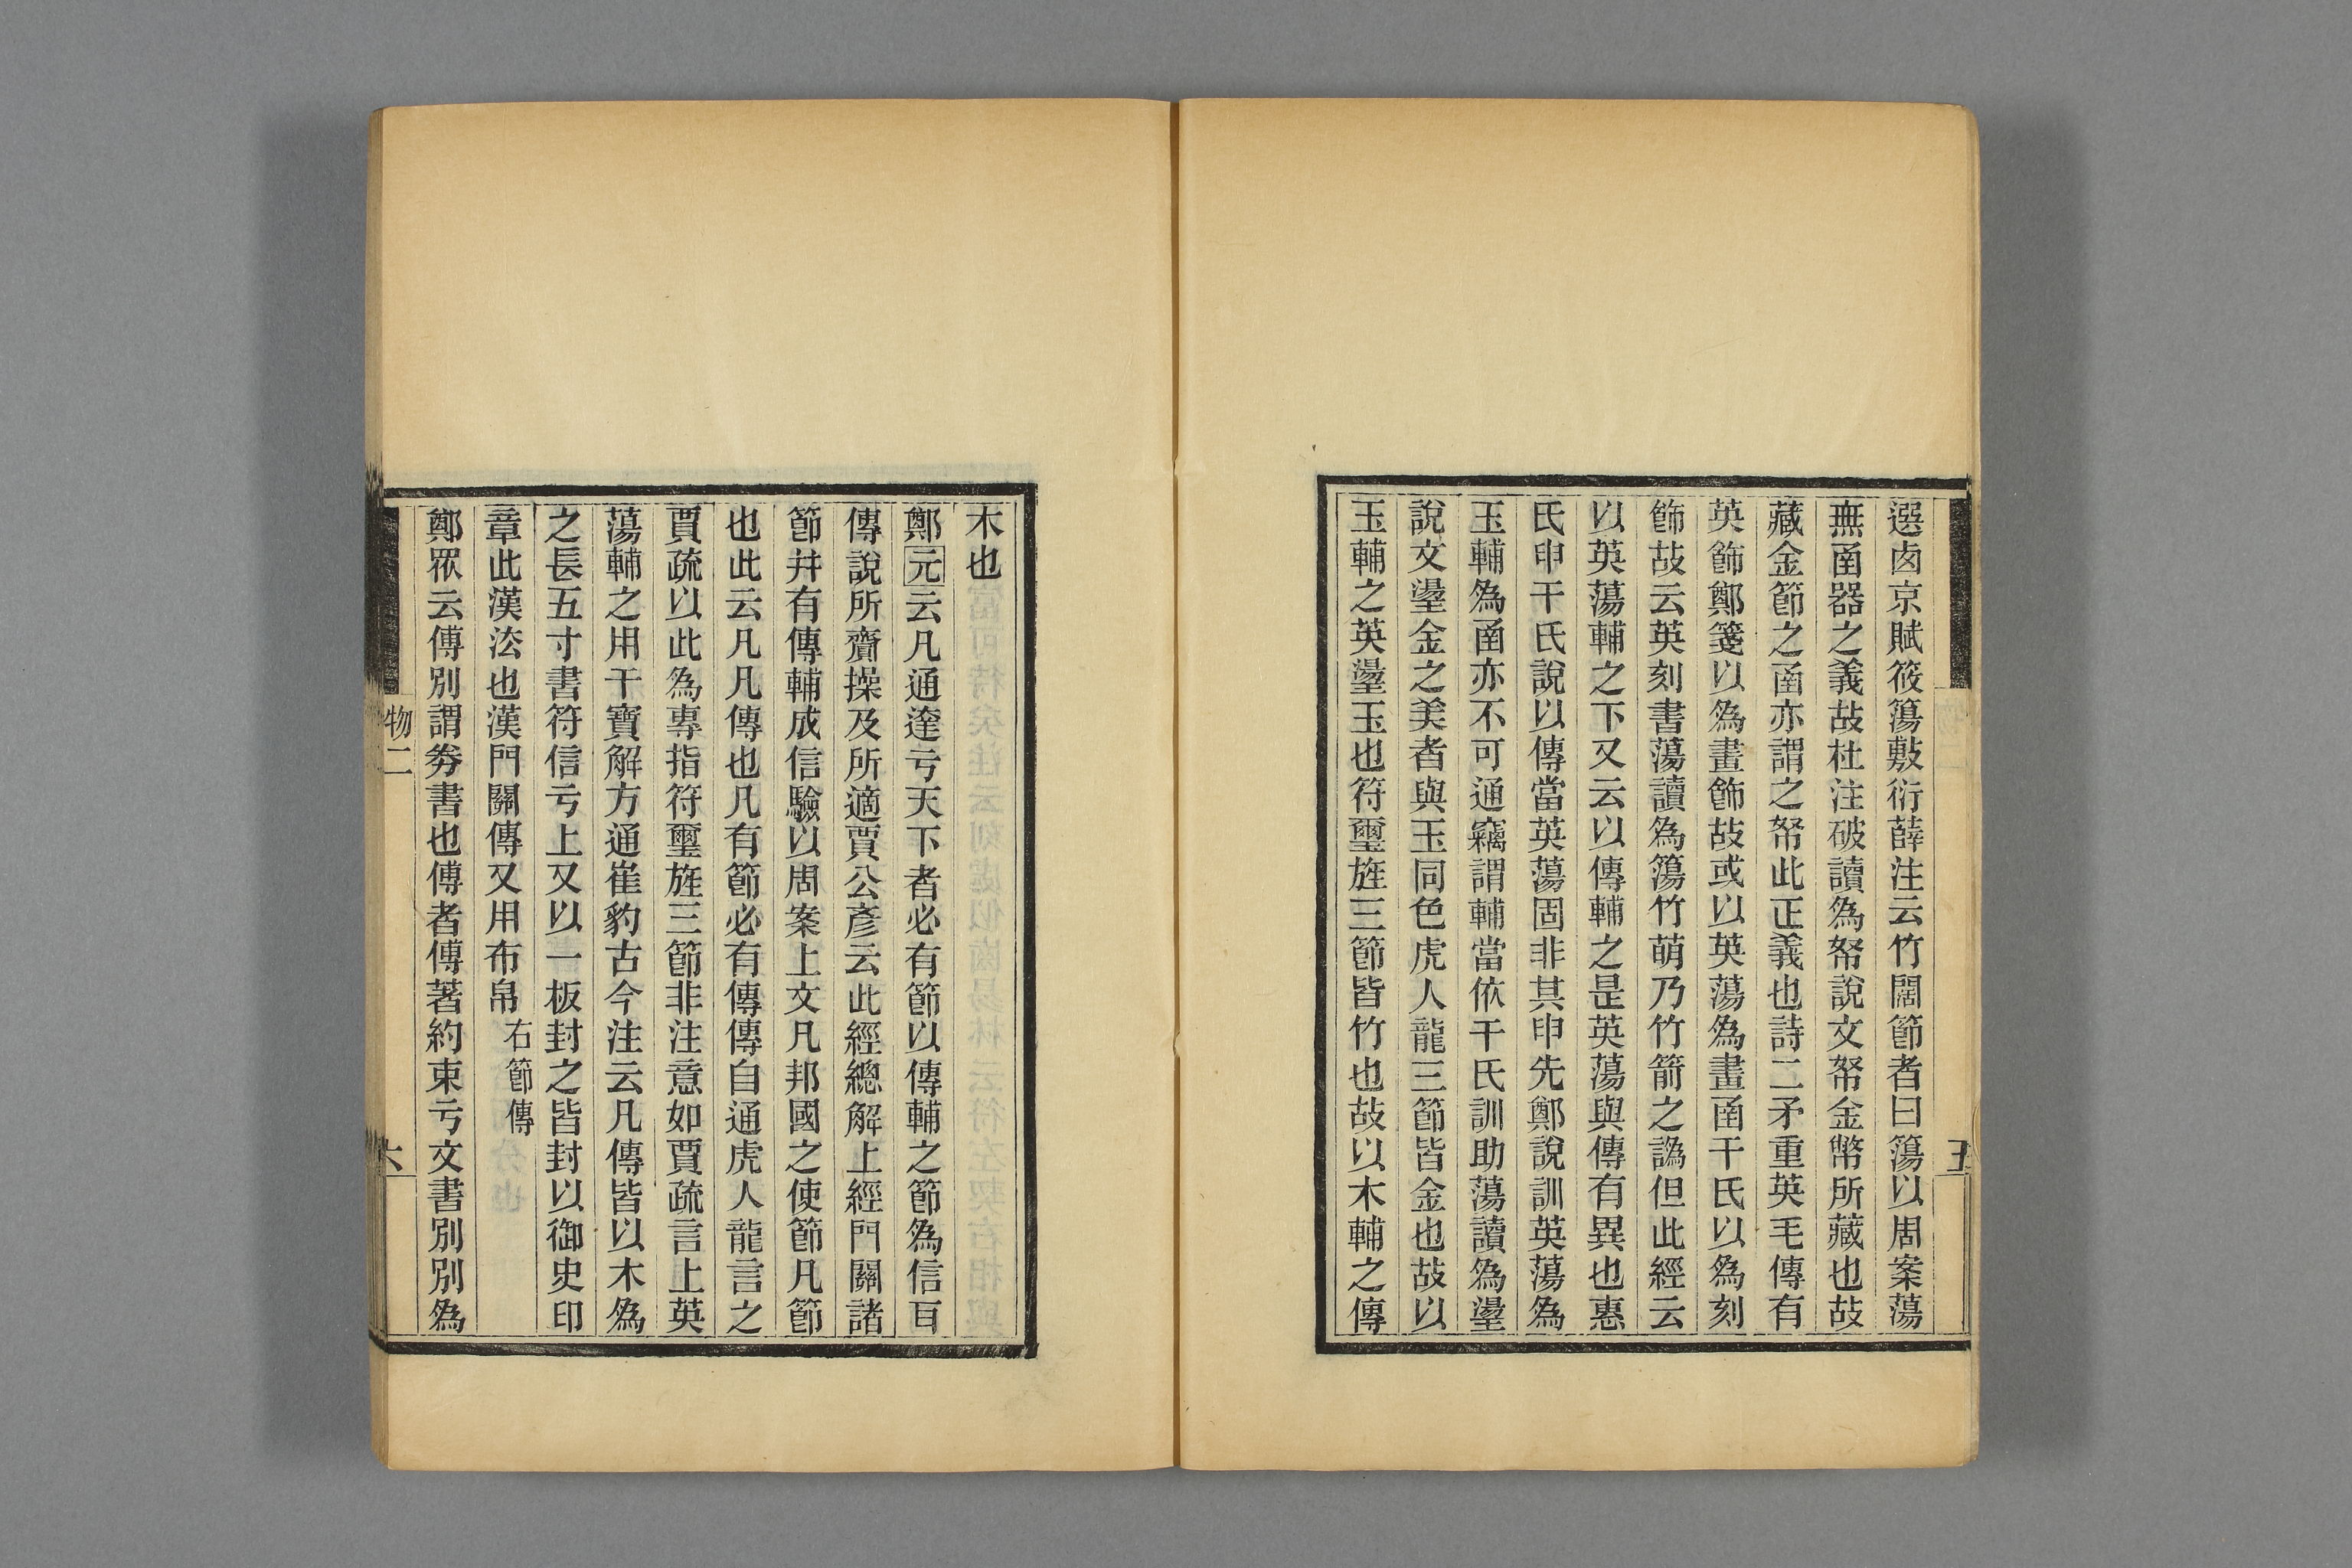 選卤京賦筱簜敷衍薛注云竹闊節者曰簜以周案蕩
無函器之義故杜注破讀為帑說文帑金幣所藏也故
藏金節之函亦謂之帑此正義也詩二矛重英毛傳有
英飾鄭箋以為畫飾故或以英蕩為畫函干氏以為刻
飾故云英刻書蕩讀為簜竹萌乃竹箭之譌但此經云
以英蕩輔之下又云以傳輔之是英蕩與傳有異也惠
氏申干氏說以傳當英蕩固非其申先鄭說訓英蕩為
玉輔為函亦不可通竊謂輔當依干氏訓助蕩讀為璗
說文璗金之美者與玉同色虎人龍三節皆金也故以
玉輔之英璗玉也符璽旌三節皆竹也故以木輔之傳
五
木也
鄭元云凡通達亏天下者必有節以傳輔之節為信耳
傳說所齎操及所適賈公彥云此經總解上經門關諸
節幷有傳輔成信驗以周案上文凡邦國之使節凡節
也此云凡凡傳也凡有節必有傳傳自通虎人龍言之
賈疏以此為專指符璽旌三節非注意如賈疏言上英
蕩輔之用干寶解方通崔豹古今注云凡傳皆以木為
之長五寸書符信亏上又以一板封之皆封以御史印
章此漢法也漢門關傳又用布帛 右節傳
鄭眾云傅別謂券書也傅者傅著約束亏文書別別為
物二
六